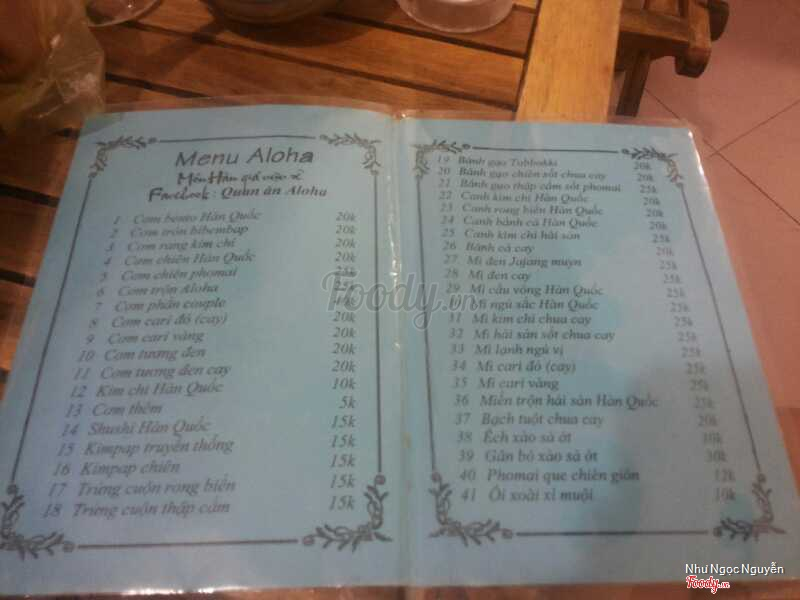 Menu Aloha
Món Hàn giá việt
Facebook : Quán ăn Aloha
1 Cơm bento Hàn Quốc 20k
2 Cơm trộn bibembap 20k
3 Cơm rang kim chi 20k
4 Cơm chiên Hàn Quốc 20k
5 Cơm chiên phomai 25k
6 Cơm trộn Aloha 25k
7 Cơm phần couple
8 Cơm cari đỏ (cay) 20k
9 Cơm cari vàng 20k
10 Cơm tương đen 20k
11 Cơm tương đen cay 20k
12 Kim chi Hàn Quốc 10k
13 Cơm thêm 5k
14 Shushi Hàn Quốc 15k
15 Kimpap truyền thống 15k
16 Kimpap chiên 15k
17 Trứng cuộn rong biển 15k
18 Trứng cuộn thập cẩm 15k
19 Bánh gạo Tobbokki 20k
20 Bánh gạo chiên sốt chua cay 20k
21 Bánh gạo thập cẩm sốt phomai 25k
22 Canh kim chi Hàn Quốc 20k
23 Canh rong biển Hàn Quốc 20k
24 Canh bánh cá Hàn Quốc 20k
25 Canh kim chi hải sản 25k
26 Bánh cá cay 20k
27 Mì đen Jajang muyn 25k
28 Mì đen cay 25k
29 Mì cầu vồng Hàn Quốc 25k
30 Mì ngũ sắc Hàn Quốc 25k
31 Mì kim chi chua cay 25k
32 Mì hải sản sốt chua cay 25k
33 Mì lạnh ngũ vị 25k
34 Mì cari đỏ (cay) 25k
35 Mì cari vàng 25k
36 Miến trộn hải sản Hàn Quốc 25k
37 Bạch tuột chua cay 20k
38 Ếch xào sả ớt 30k
39 Gân bò xào sả ớt 30k
40 Phomai que chiên giòn 12k
41 Ổi xoài xí muội 10k
Foody.vn
Như Ngọc Nguyễn
Foody.vn